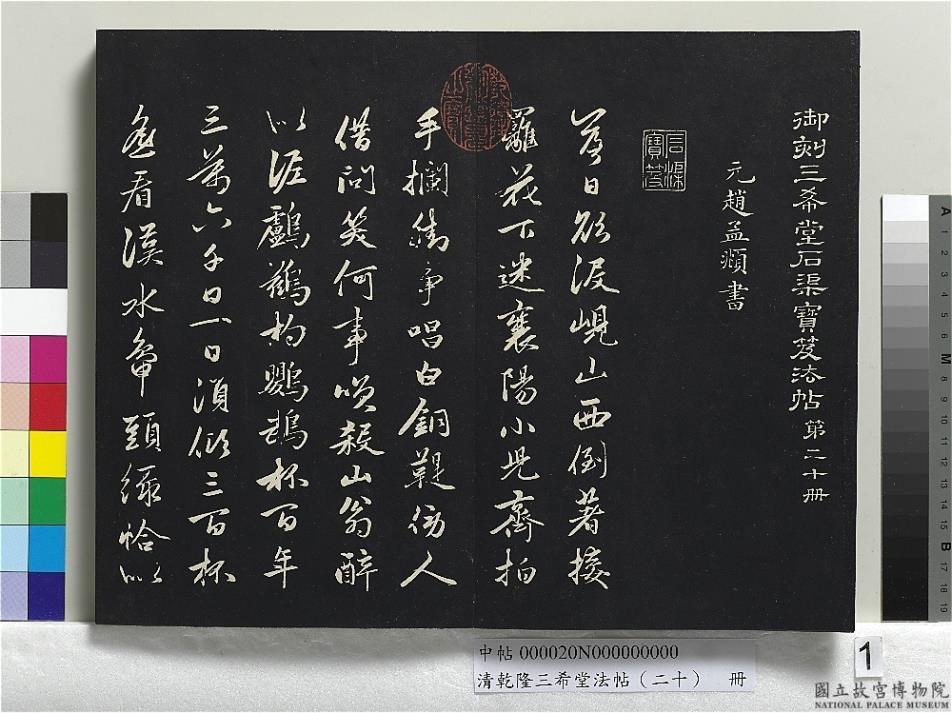 御刻三希堂石渠寶笈法帖第二十冊
元趙孟頫書
石渠寶笈
落日欲沒峴山西倒著接
䍦花下迷襄陽小児齊拍
手攔街爭唱白銅鞮傍人
借問笑何事咲殺山翁醉
似泥鸕鶿杓鸚鵡杯百年
三萬六千日一日須傾三百杯
遙看漢水鴨頭綠恰似
中帖 000020N000000000
清乾隆三希堂法帖（二十） 冊
1
國立故宮博物院
NATIONAL PALACE MUSEUM
A 1 2 3 4 5 M 8 9 10 11 12 13 14 15 B 17 18 19